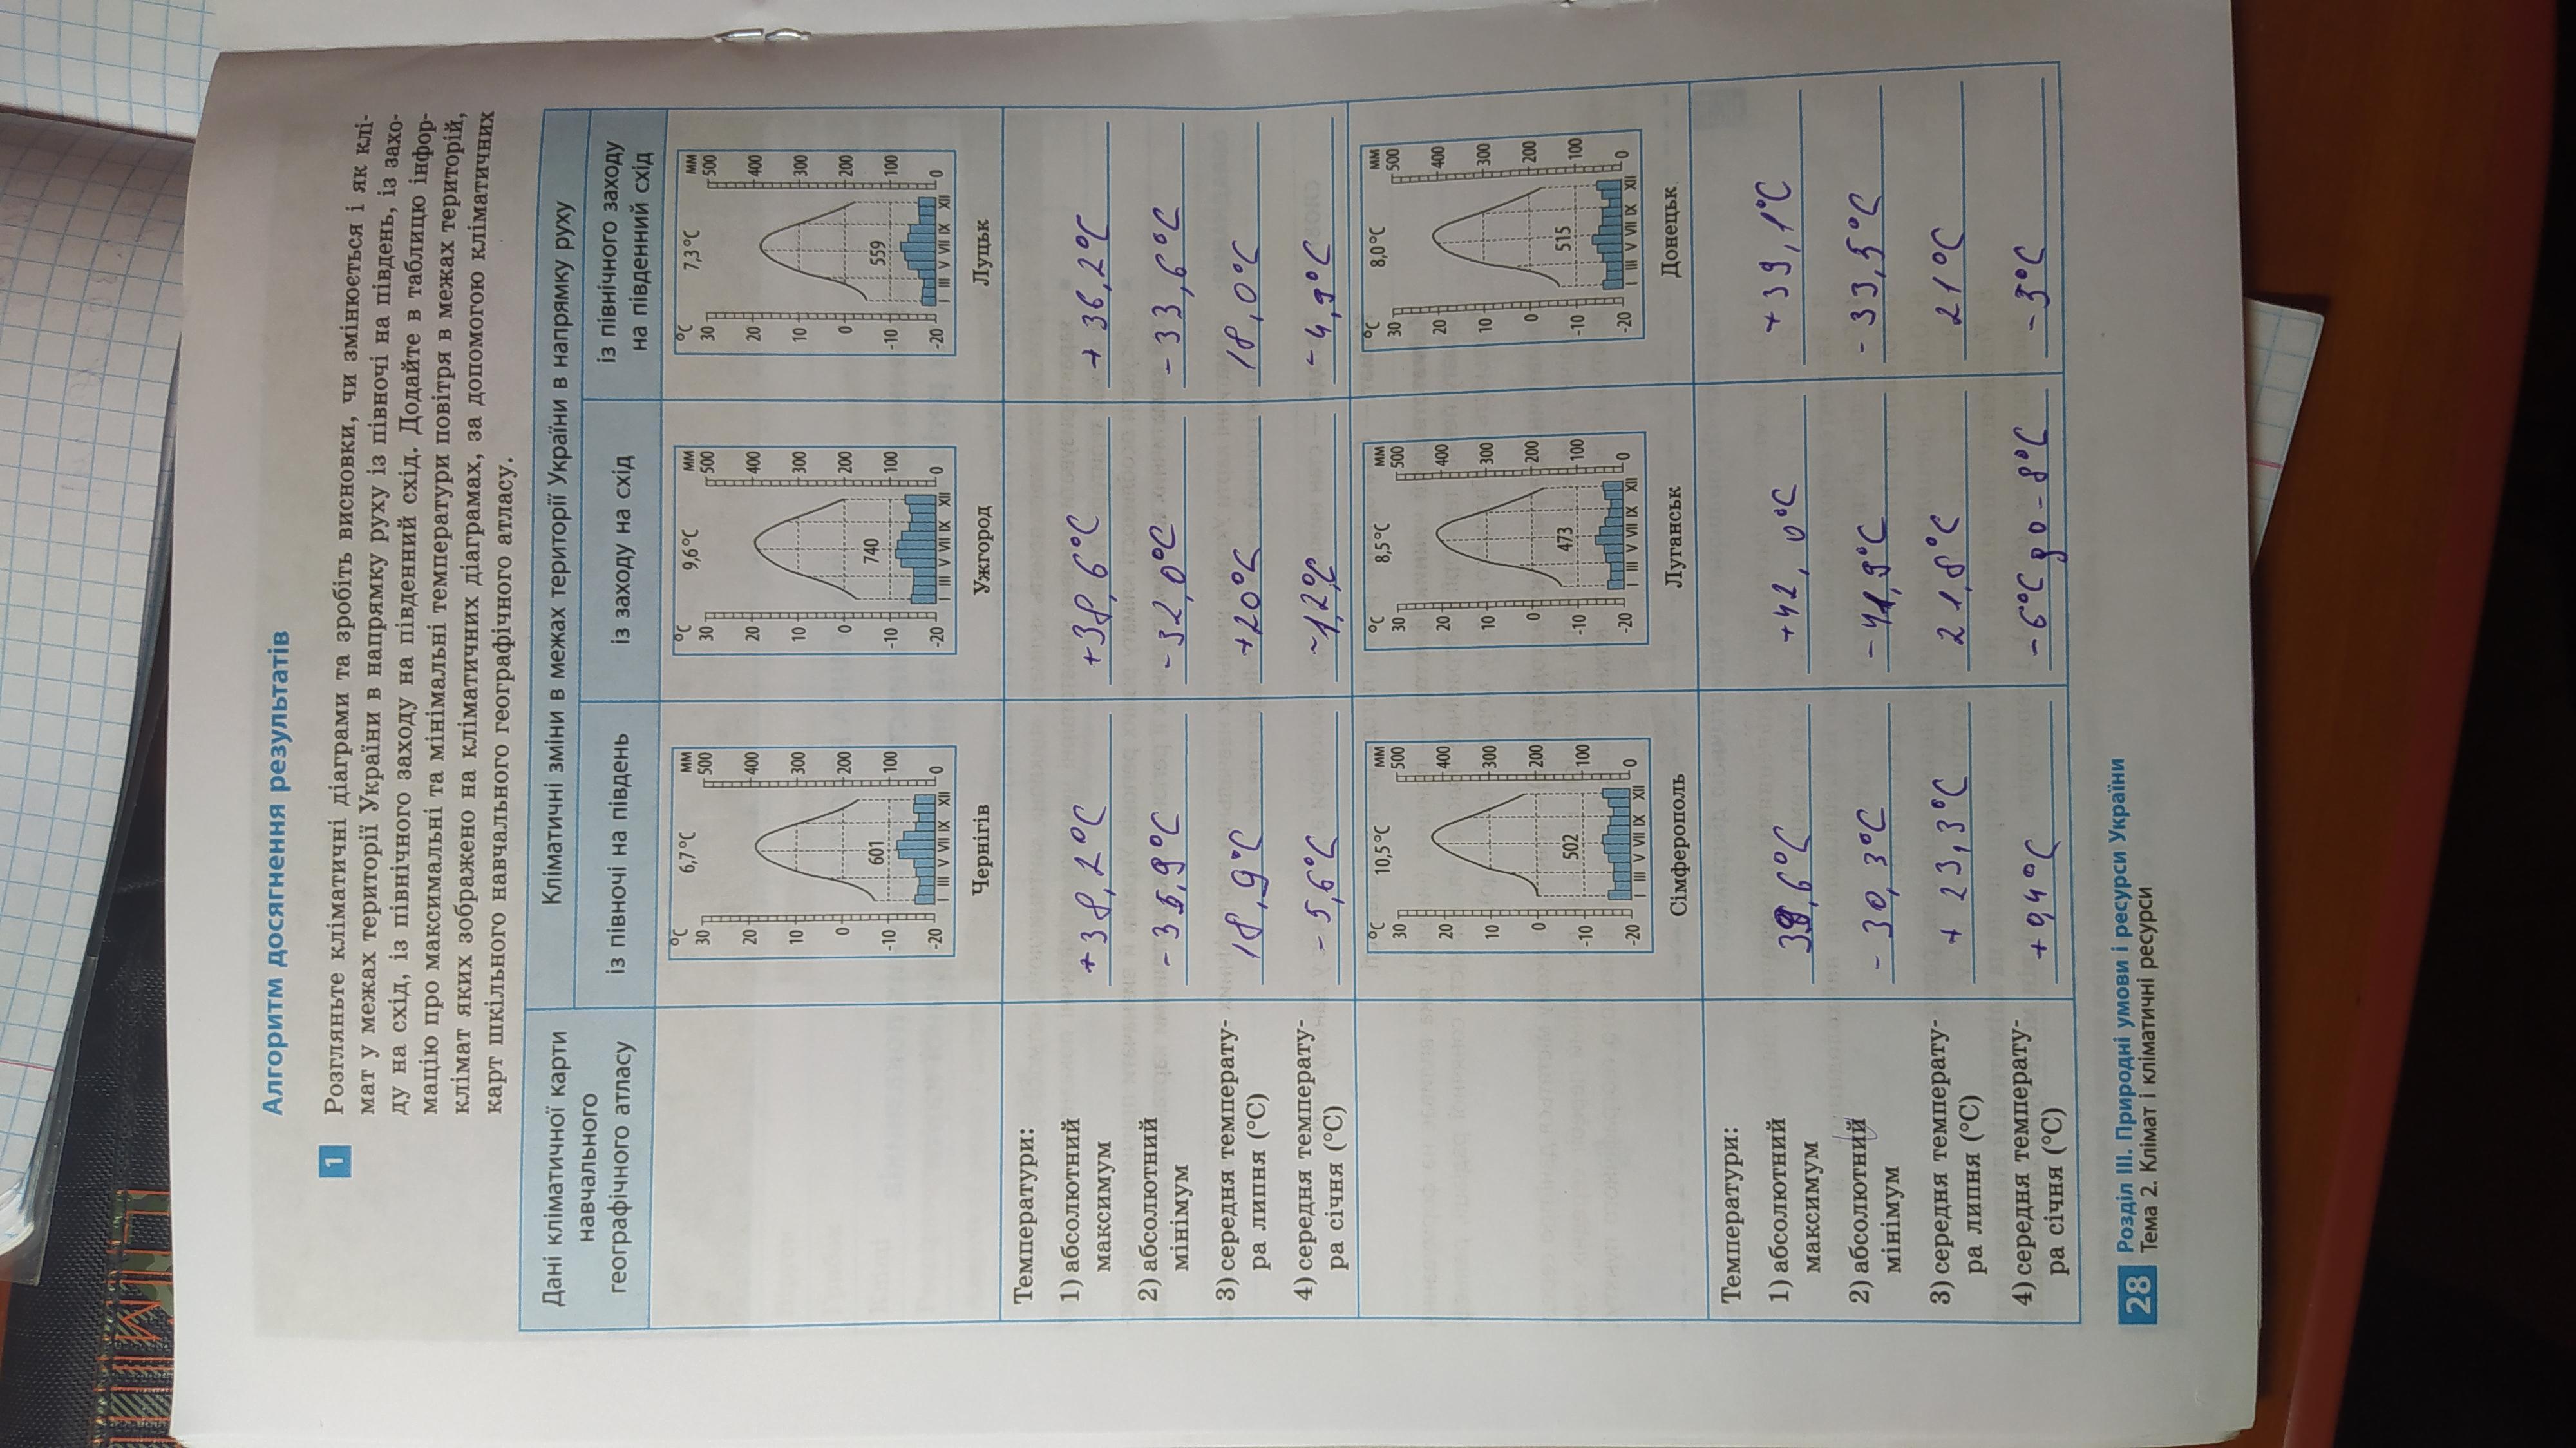 Алгоритм досягнення результатів
1 Розгляньте кліматичні діаграми та зробіть висновки, чи змінюється і як клі-
мат у межах території України в напрямку руху із півночі на південь, із захо-
ду на схід, із північного заходу на південний схід. Додайте в таблицю інфор-
мацію про максимальні та мінімальні температури повітря в межах територій,
клімат яких зображено на кліматичних діаграмах, за допомогою кліматичних
карт шкільного навчального географічного атласу.
Дані кліматичної карти
навчального
географічного атласу
Кліматичні зміни в межах території України в напрямку руху
із півночі на південь
із заходу на схід
із північного заходу
на південний схід
°C 6,7°C мм
30 500
20 400
10 300
0 200
-10 100
-20 0
601
I III V VII IX XII
Чернігів
°C 9,6°C мм
30 500
20 400
10 300
0 200
-10 100
-20 0
740
I III V VII IX XII
Ужгород
°C 7,3°C мм
30 500
20 400
10 300
0 200
-10 100
-20 0
559
I III V VII IX XII
Луцьк
Температури:
1) абсолютний
максимум
+38,2°C +38,6°C +36,2°C
2) абсолютний
мінімум
-35,9°C -32,0°C -33,6°C
3) середня температу-
ра липня (°C)
18,9°C +20°C 18,0°C
4) середня температу-
ра січня (°C)
-5,6°C ~1,2°C -4,9°C
°C 10,5°C мм
30 500
20 400
10 300
0 200
-10 100
-20 0
502
I III V VII IX XII
Сімферополь
°C 8,5°C мм
30 500
20 400
10 300
0 200
-10 100
-20 0
473
I III V VII IX XII
Луганськ
°C 8,0°C мм
30 500
20 400
10 300
0 200
-10 100
-20 0
515
I III V VII IX XII
Донецьк
Температури:
1) абсолютний
максимум
+42,0°C +39,1°C
2) абсолютний
мінімум
-30,3°C -41,9°C -33,5°C
3) середня температу-
ра липня (°C)
+23,3°C 21,8°C 21°C
4) середня температу-
ра січня (°C)
+0,4°C -6°C до -8°C -5°C
28 Розділ III. Природні умови і ресурси України
Тема 2. Клімат і кліматичні ресурси